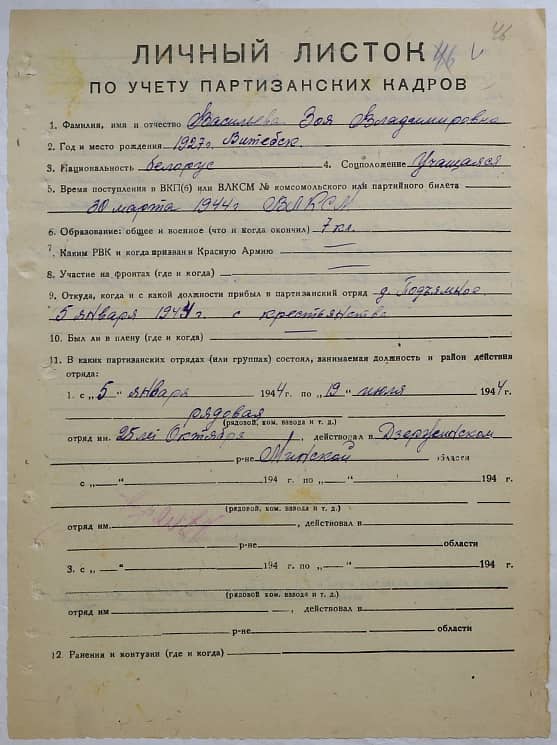 46
ЛИЧНЫЙ ЛИСТОК 46
ПО УЧЕТУ ПАРТИЗАНСКИХ КАДРОВ
1. Фамилия, имя и отчество Васильева Зоя Владимировна
2. Год и место рождения 1927г. Витебск
3. Национальность белорус 4. Соцположение Учащаяся
5. Время поступления в ВКП(б) или ВЛКСМ № комсомольского или партийного билета
30 марта 1944г ВЛКСМ
6. Образование: общее и военное (что и когда окончил) 7 кл.
7. Каким РВК и когда призван в Красную Армию
8. Участие на фронтах (где и когда)
9. Откуда, когда и с какой должности прибыл в партизанский отряд д.
5 января 1944г. с крестьянства
10. Был ли в плену (где и когда)
11. В каких партизанских отрядах (или группах) состоял, занимаемая должность и район действия
отряда:
1. с „5“ января 1944 г. по „19“ июля 1944 г.
рядовая
(рядовой, ком. взвода и т. д.)
отряд им. 25 лет Октября, действовал в Дзержинском
р-не Минской области
с „—“ 194 г. по „—“ 194 г.
(рядовой, ком. взвода и т. д.)
отряд им. , действовал в
р-не области
3. с „—“ 194 г. по „—“ 194 г.
(рядовой, ком. взвода и т. д.)
отряд им , действовал в
р-не области
12. Ранения и контузии (где и когда)